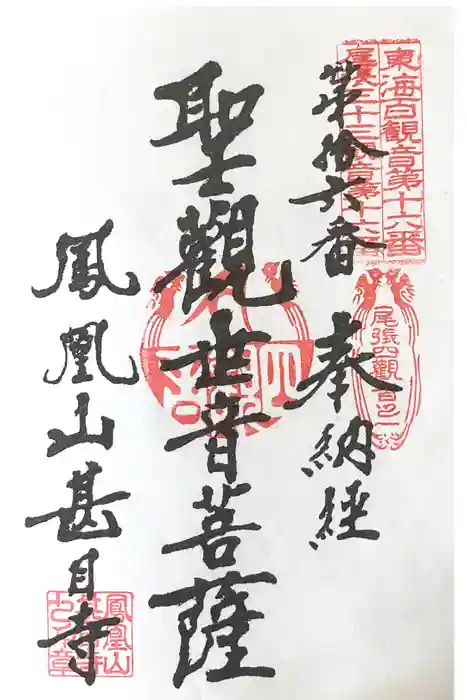 東海百観音第十六番
尾張三十三観音第十六番
尾張四観音之一
第拾六番
奉納経
聖觀世音菩薩
鳳凰山甚目寺
鳳凰山